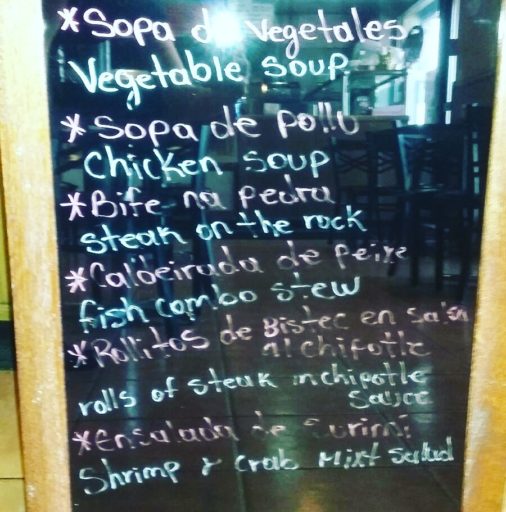 *Sopa de Vegetales
Vegetable Soup
*Sopa de pollo
Chicken Soup
*Bife na pedra
steak on the rock
*Caldeirada de peixe
fish combo stew
*Rollitos de Bistec en salsa
Al chifotle
rolls of steak in chipotle
sauce
*ensalada de Surimi
Shrimp & crab Mixt Salad